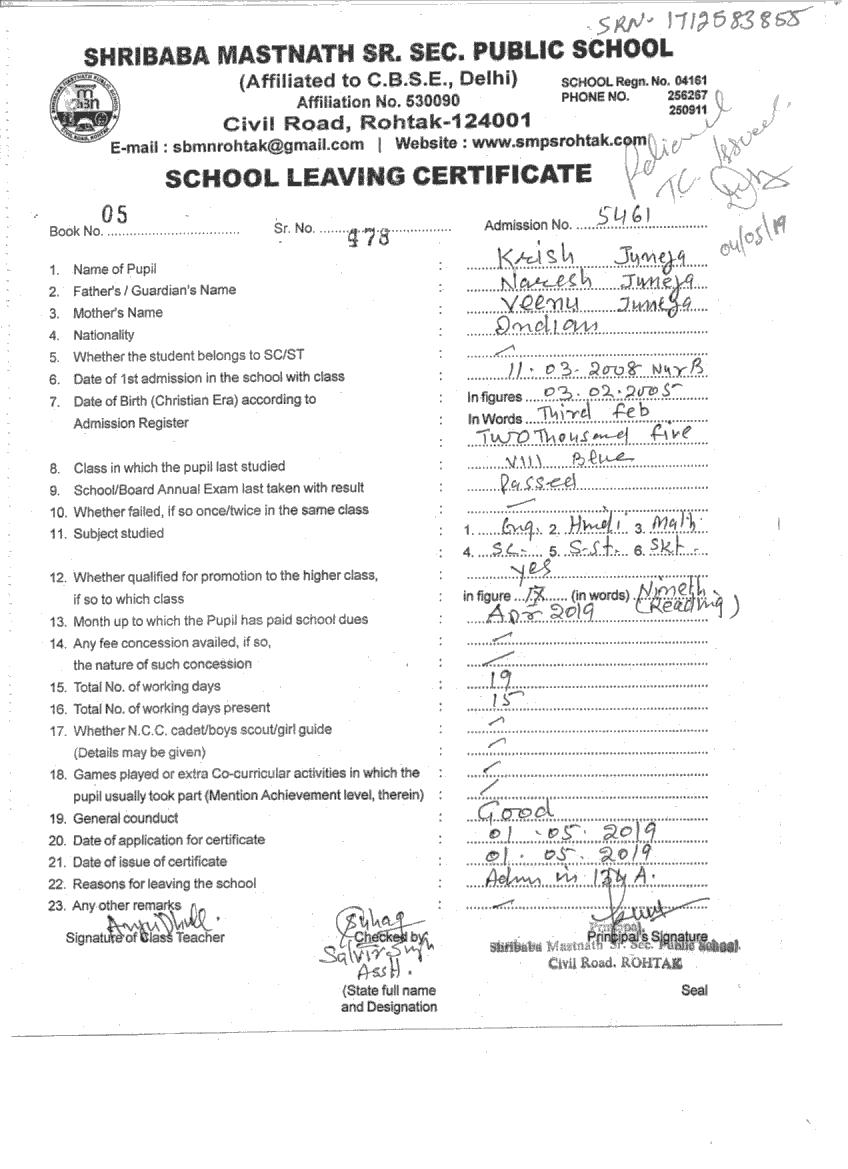 SRN- 1712583855
SHRIBABA MASTNATH SR. SEC. PUBLIC SCHOOL
(Affiliated to C.B.S.E., Delhi)
SCHOOL Regn. No. 04161
Affiliation No. 530090
PHONE NO. 256267
250911
Civil Road, Rohtak-124001
E-mail : sbmnrohtak@gmail.com | Website : www.smpsrohtak.com
T.C. Issued.
04/05/19
SCHOOL LEAVING CERTIFICATE
Book No. 05 Sr. No. 478 Admission No. 5461
1. Name of Pupil : Krish Juneja
2. Father's / Guardian's Name : Naresh Juneja
3. Mother's Name : Veenu Juneja
4. Nationality : Indian
5. Whether the student belongs to SC/ST :
6. Date of 1st admission in the school with class : 11.03.2008 Nur B
7. Date of Birth (Christian Era) according to : In figures 03.02.2005
Admission Register : In Words Third Feb
Two Thousand five
8. Class in which the pupil last studied : VIII Blue
9. School/Board Annual Exam last taken with result : Passed
10. Whether failed, if so once/twice in the same class :
11. Subject studied : 1. Eng. 2. Hindi 3. Math
: 4. SC. 5. S-St. 6. Skt.
12. Whether qualified for promotion to the higher class, : yes
if so to which class : in figure IX (in words) Nineth
13. Month up to which the Pupil has paid school dues : Apr 2019 (Reading)
14. Any fee concession availed, if so, :
the nature of such concession :
15. Total No. of working days : 19
16. Total No. of working days present : 15
17. Whether N.C.C. cadet/boys scout/girl guide :
(Details may be given) :
18. Games played or extra Co-curricular activities in which the :
pupil usually took part (Mention Achievement level, therein) :
19. General counduct : Good
20. Date of application for certificate : 01.05.2019
21. Date of issue of certificate : 01.05.2019
22. Reasons for leaving the school : Admn in 134 A.
23. Any other remarks :
Signature of Class Teacher
Checked by:
Satvir Singh
Asstt.
(State full name
and Designation
Principal,
Principal's Signature
Shribaba Mastnath Sr. Sec. Public School
Civil Road. ROHTAK
Seal